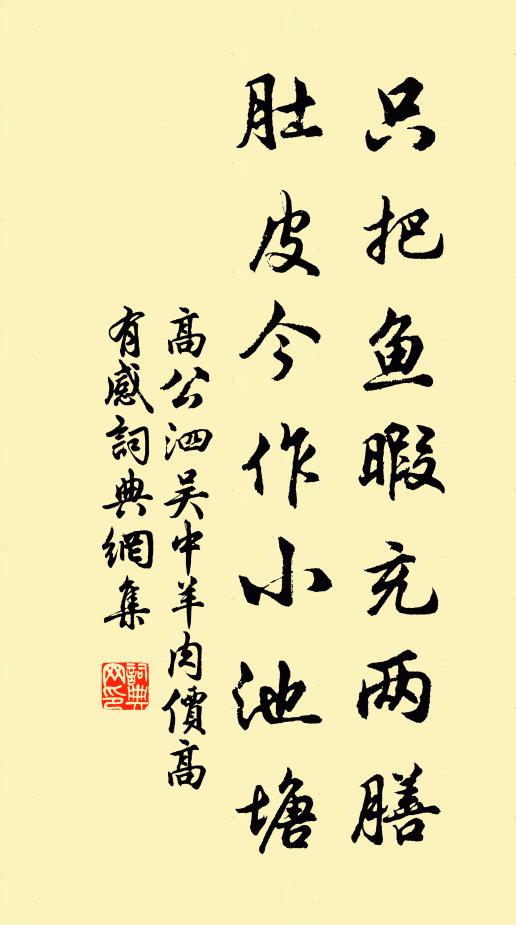 只把鱼暇充两膳
肚皮今作小池塘
高公泗吴中羊肉價高
有感詞典網集
詞典网印